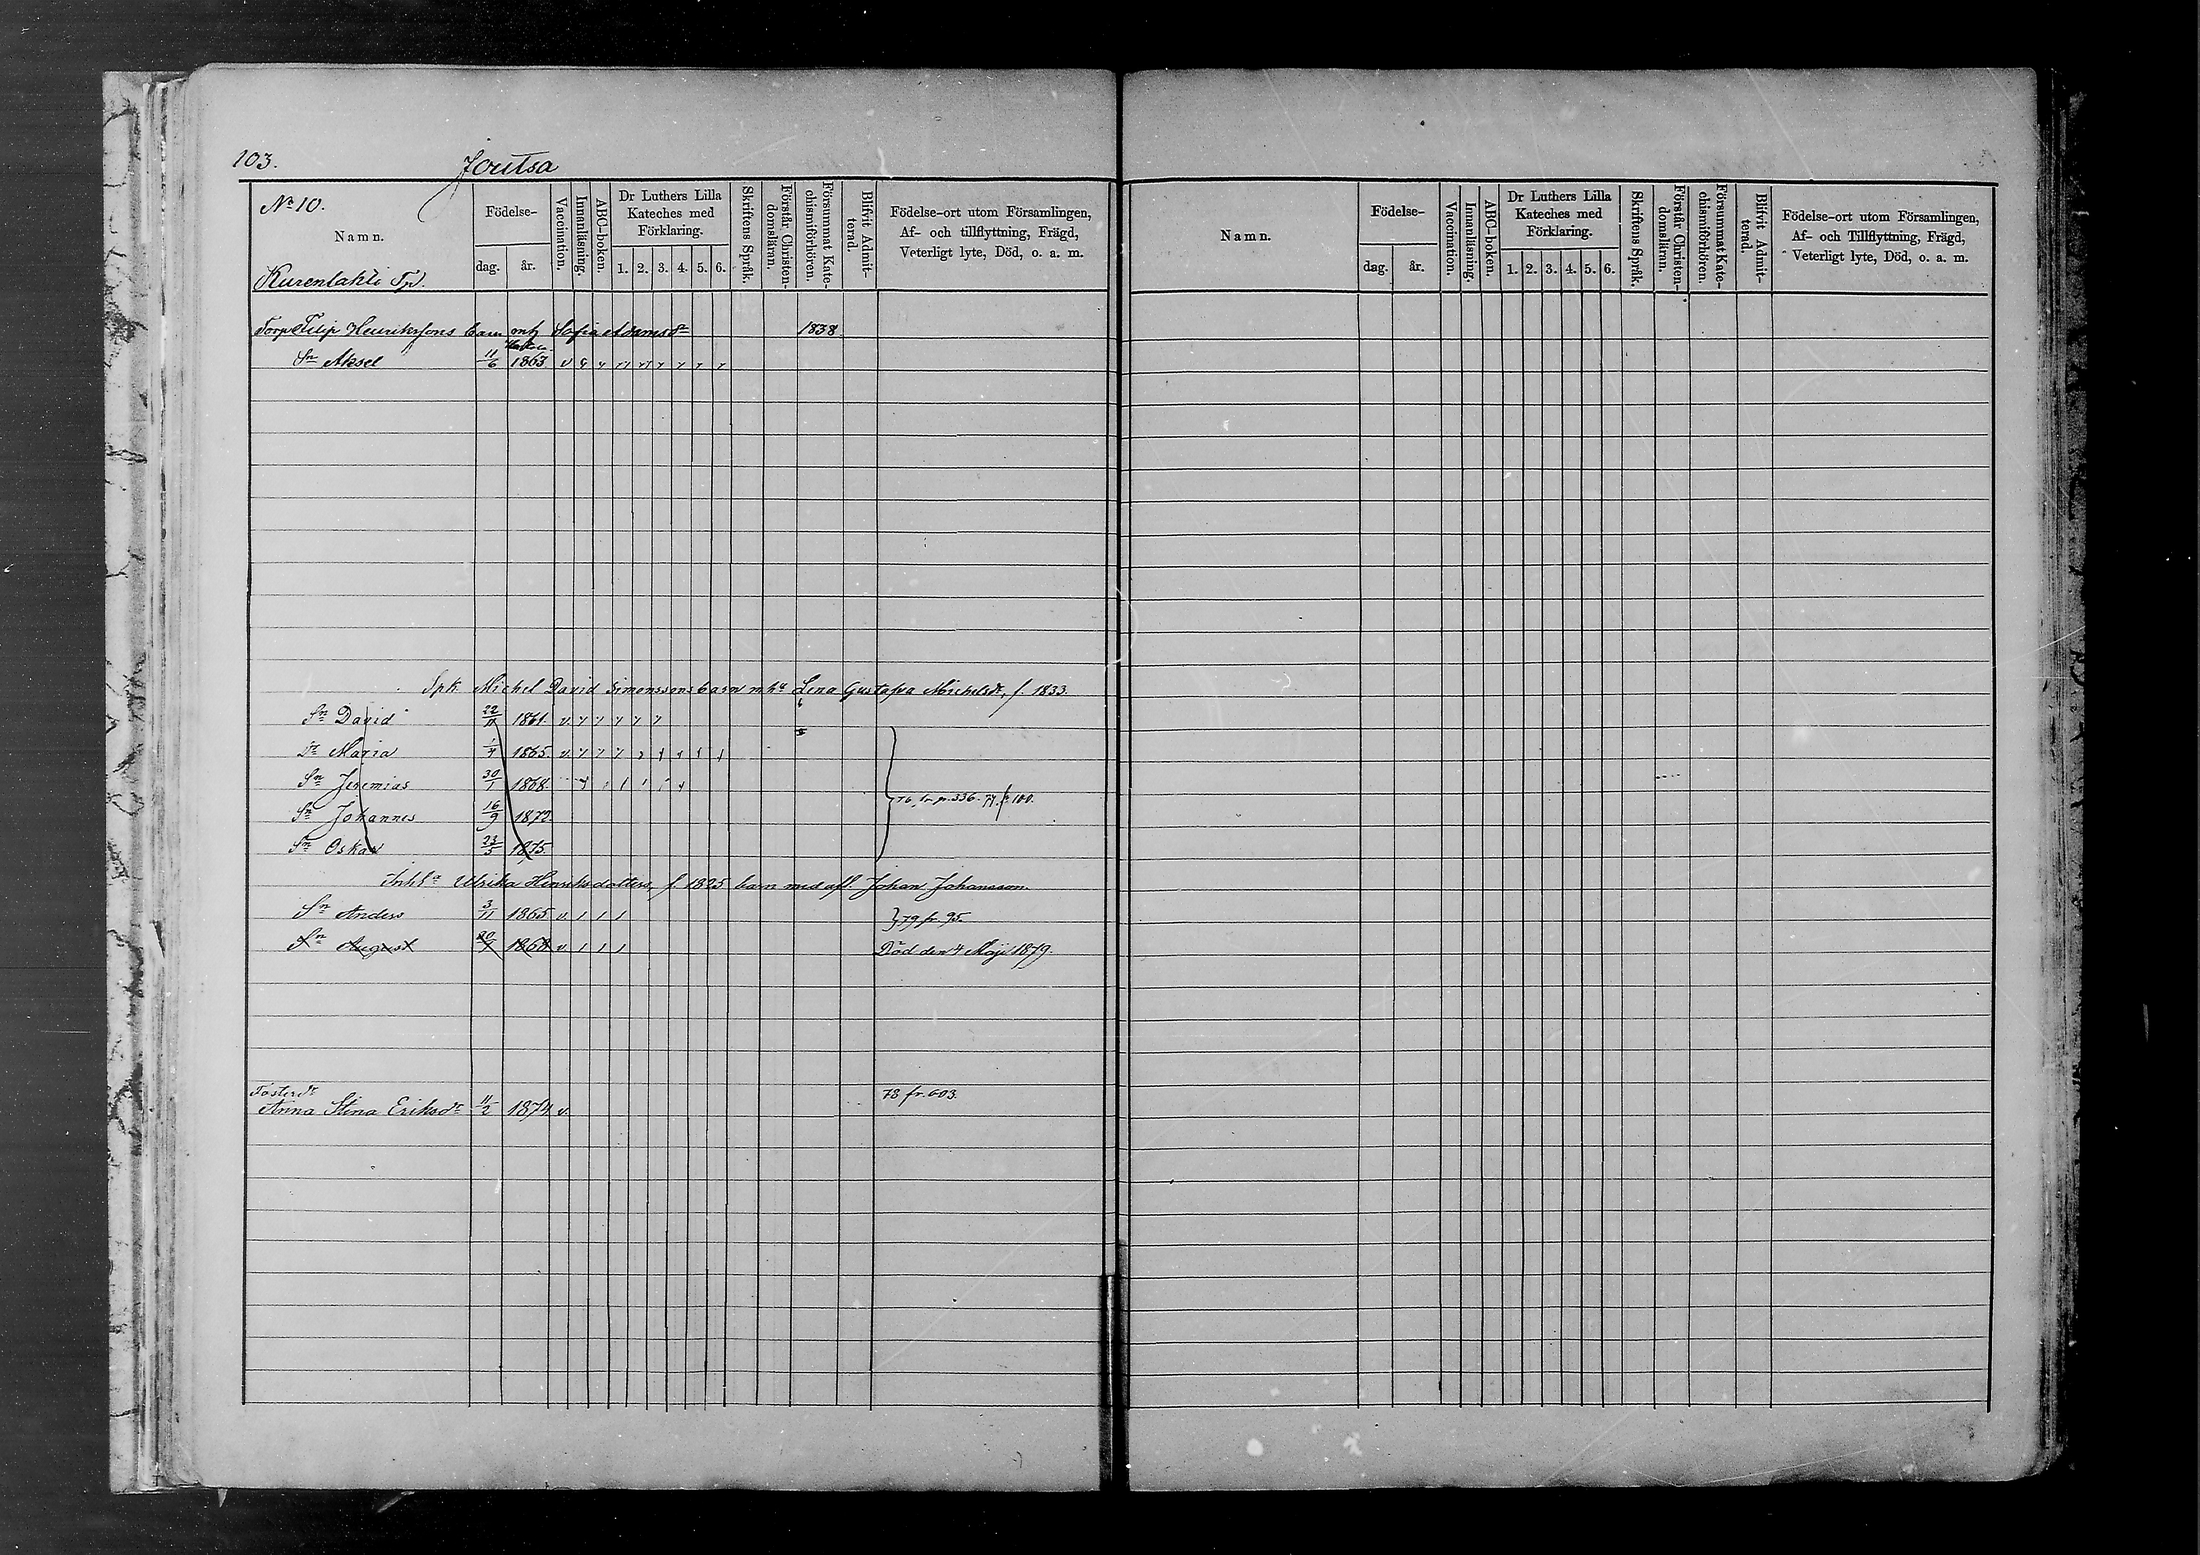 103.
Joutsa
No 10.
Namn.
Kurenlahti Tp.
Födelse-
dag.
år.
Vaccination.
Innanläsning.
ABC-boken.
Dr Luthers Lilla
Kateches med
Förklaring.
1. 2. 3. 4. 5. 6.
Skriftens Språk.
Förstår Christen-
domsläran.
Försummat Kate-
chismiförhören.
Blifvit Admit-
terad.
Födelse-ort utom Församlingen,
Af- och tillflyttning, Frägd,
Veterligt lyte, Död, o. a. m.
Torp. Filip Henrikssons barn m h Sofia Adamsdr 1838.
Sn Aksel 11/6 1863. v
Spk Michel David Simonssons barn m hu Lena Gustafva Michelsdr, f. 1833.
Sn David 22/11 1861. v.
Dr Maria 1865. v.
Sn Jeremias 30/1 1868.
76, fr. p. 336. 77. p. 100.
Sn Johannes 16/9 1873.
Sn Oskar 23/5 1875.
Inhs Ulrika Henriksdotters, f. 1825 barn med afl. Johan Johansson.
Sn Anders 3/11 1865 v. 1 1 1 79 fr. 95.
Sn August 1868 v. 1 1 1 Död den 4 Maji 1879.
Fosterdr 78 fr. 603.
Anna Stina Eriksdr 11/2 1874 v.
Namn.
Födelse-
dag.
år.
Vaccination.
Innanläsning.
ABC-boken.
Dr Luthers Lilla
Kateches med
Förklaring.
1. 2. 3. 4. 5. 6.
Skriftens Språk.
Förstår Christen-
domsläran.
Försummat Kate-
chismiförhören.
Blifvit Admit-
terad.
Födelse-ort utom Församlingen,
Af- och Tillflyttning, Frägd,
Veterligt lyte, Död, o. a. m.